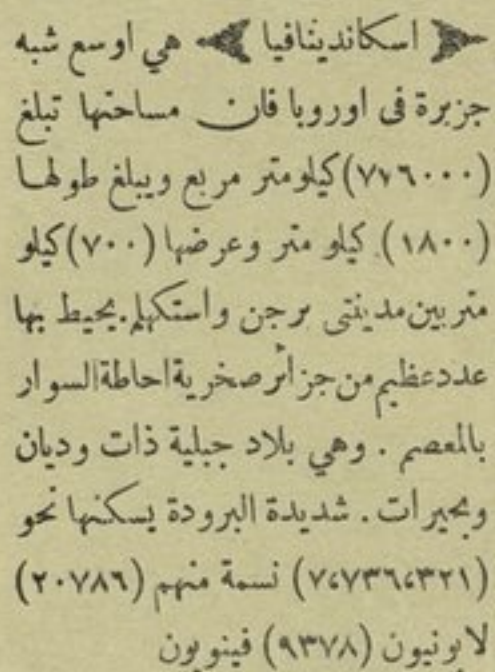 اسكاندينافيا هي اوسع شبه
جزيرة فى اوروبا فان مساحتها تبلغ
(٧٧٦٠٠٠) كيلومتر مربع ويبلغ طولها
(١٨٠٠) كيلو متر وعرضها (٧٠٠) كيلو
متر بين مدينتى برجن واستكهلم. يحيط بها
عدد عظيم من جزائر صخرية احاطة السوار
بالمعصم . وهي بلاد جبلية ذات وديان
وبحيرات . شديدة البرودة يسكنها نحو
(٧،٧٣٦،٣٢١) نسمة منهم (٢٠٧٨٦)
لابونيون (٩٣٧٨) فينويون